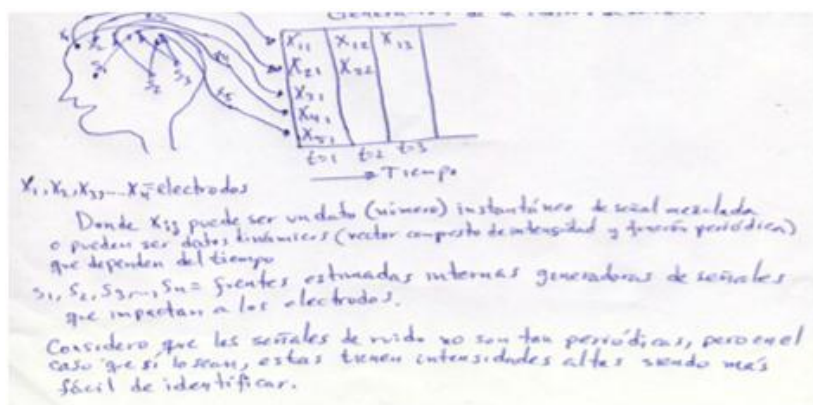 Generación de la
x₁ x₂
s₁ s₂ s₃
x₄
x₅
X₁₁ X₁₂ X₁₃
X₂₁ X₂₂
X₃₁
X₄₁
X₅₁
t=1 t=2 t=3
→ Tiempo
X₁, X₂, X₃, ... Xₙ = electrodos
Donde Xᵢⱼ puede ser un dato (número) instantáneo de señal mezclada
o pueden ser datos dinámicos (vector compuesto de intensidad y función periódica)
que dependen del tiempo
S₁, S₂, S₃, ..., Sₙ = fuentes estimadas internas generadoras de señales
que impactan a los electrodos.
Considero que las señales de ruido no son tan periódicas, pero en el
caso que sí lo sean, estas tienen intensidades altas siendo más
fácil de identificar.